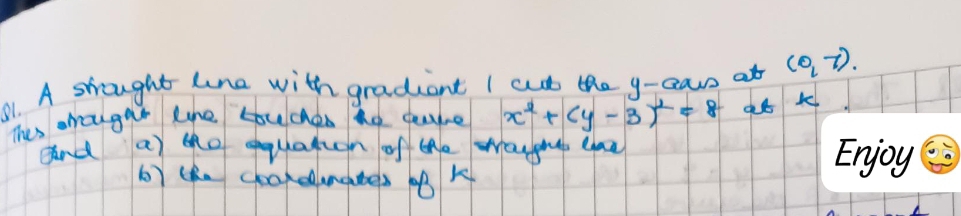 Q1. A straight line with gradient 1 cut the y-axis at (0, 7).
This straight line touches the curve x² + (y - 3)² = 8 at K.
Find a) the equation of the straight line
b) the coordinates of K
Enjoy 🥴